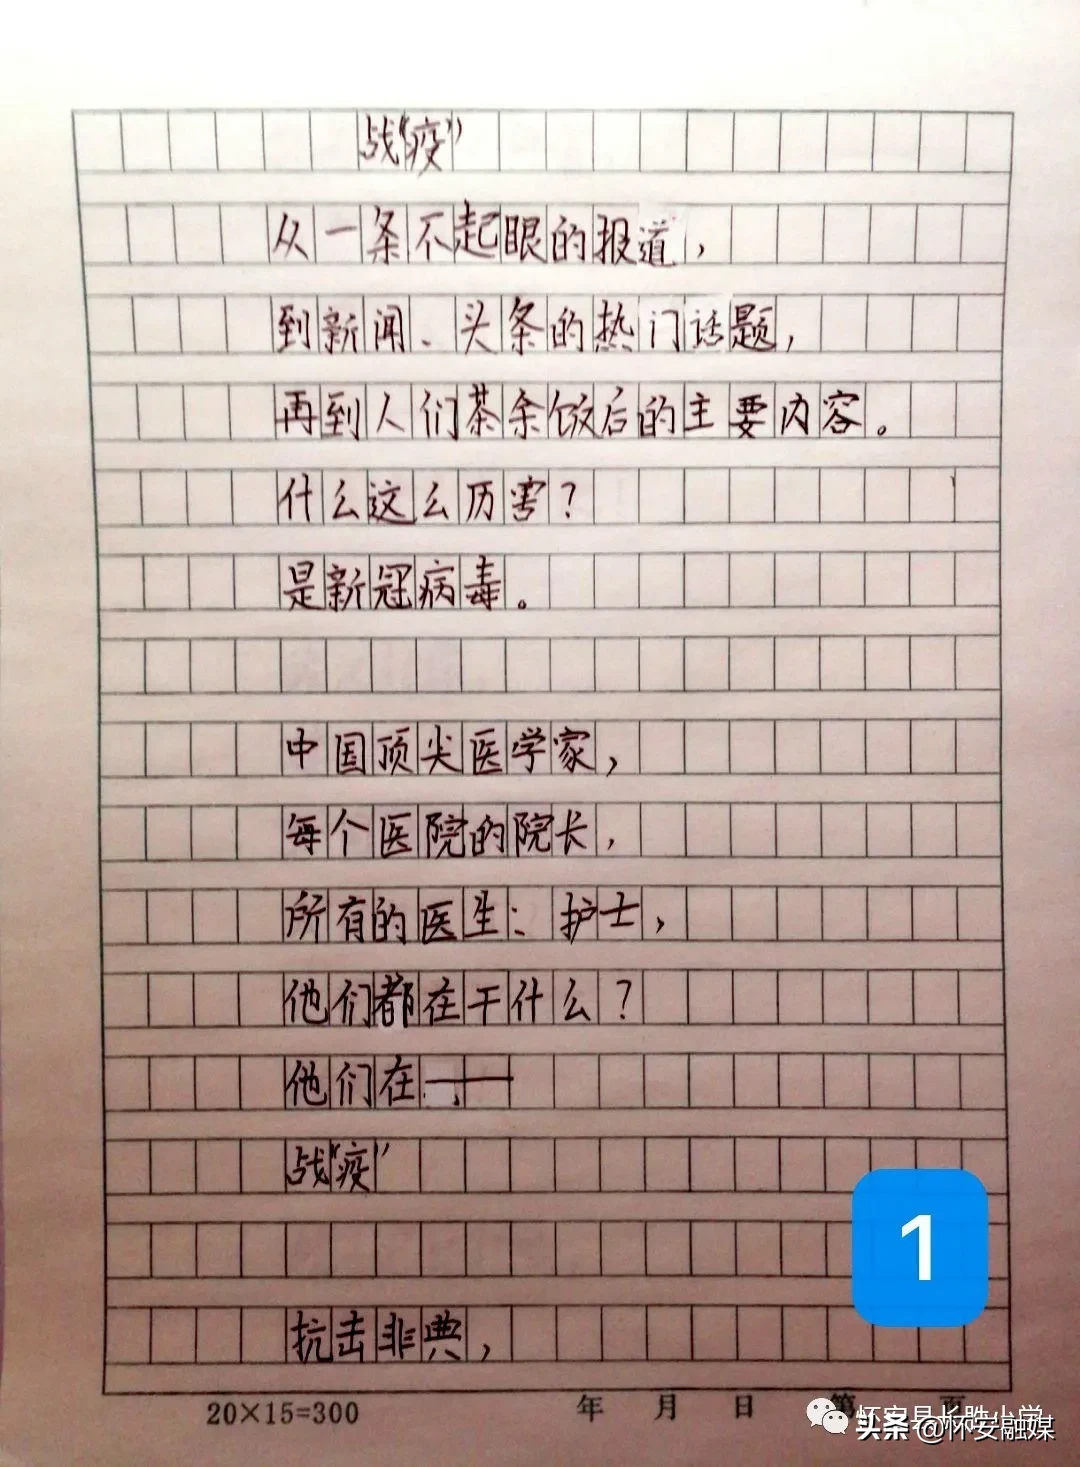 战“疫”
从一条不起眼的报道，
到新闻、头条的热门话题，
再到人们茶余饭后的主要内容。
什么这么历害？
是新冠病毒。
中国顶尖医学家，
每个医院的院长，
所有的医生：护士，
他们都在干什么？
他们在——
战“疫”
抗击非典，
1
20×15=300 年 月 日 第 页
怀安县长胜小学
头条 @怀安融媒